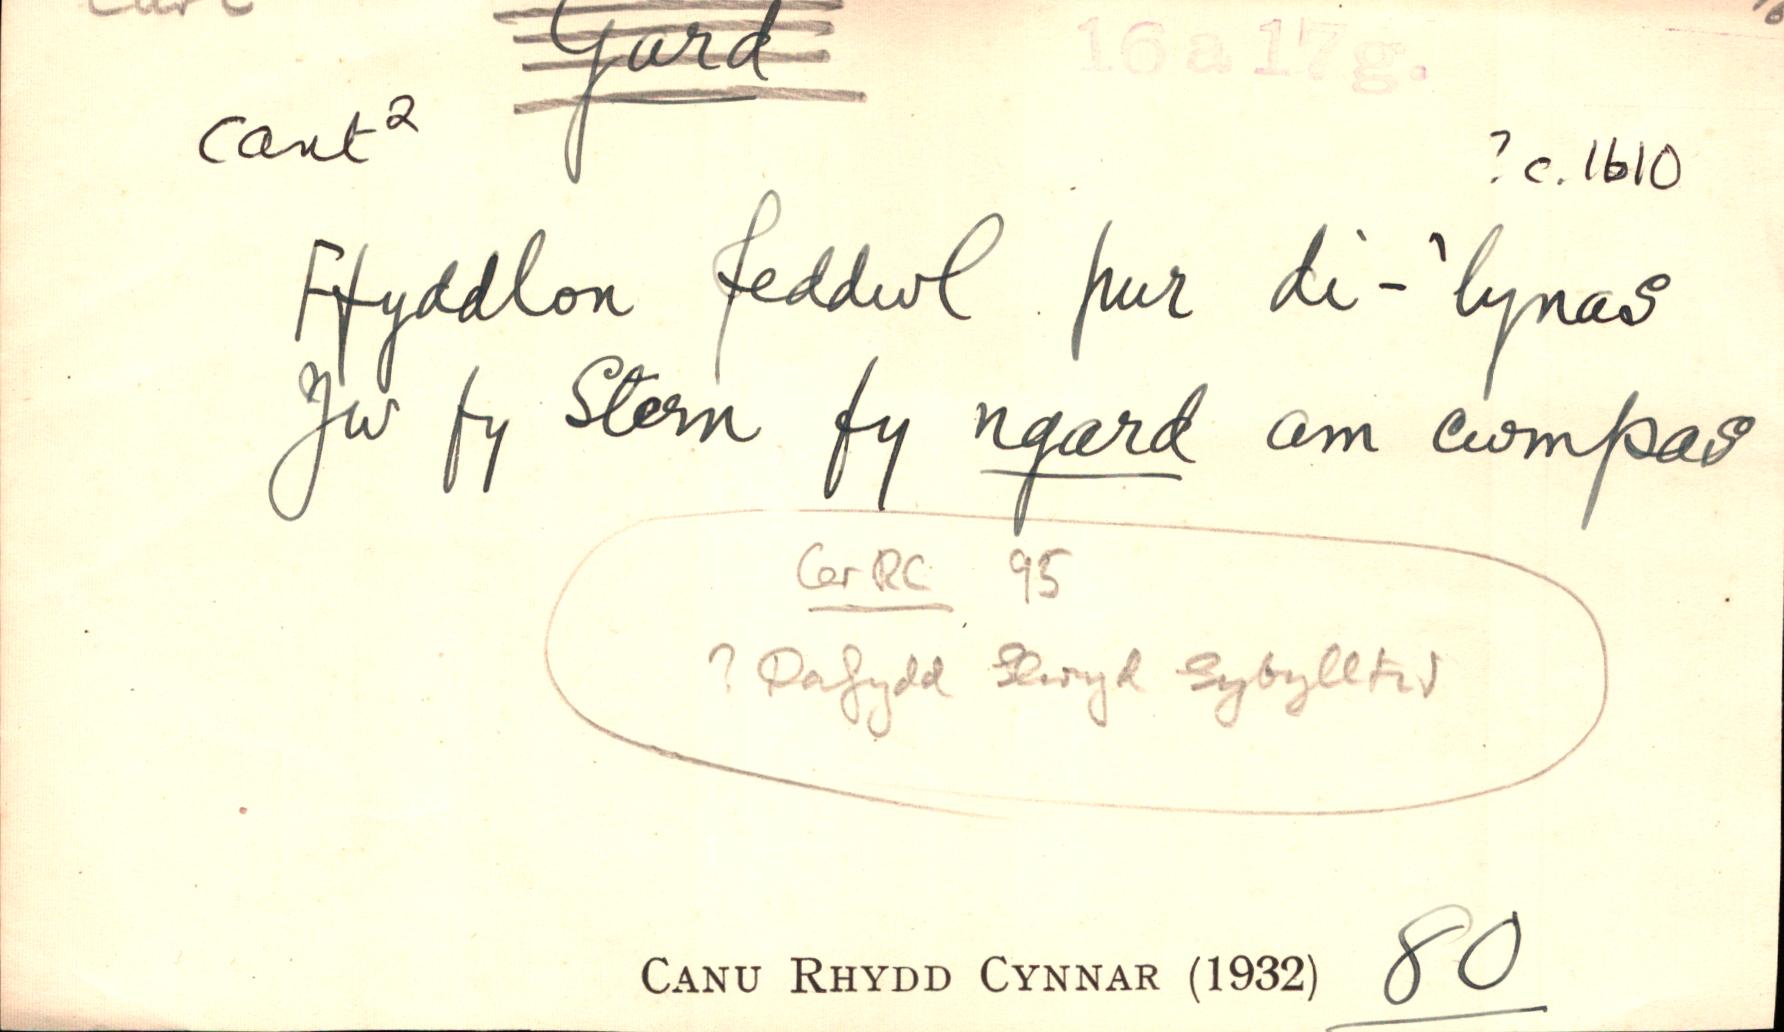 Gard
16 a 17g.
cant²
? c. 1610
Ffyddlon feddwl pur di-'lynas
Yw fy Stern fy ngard am cwmpas
CerRC 95
? Dafydd Llwyd Sybylltir
CANU RHYDD CYNNAR (1932) 80